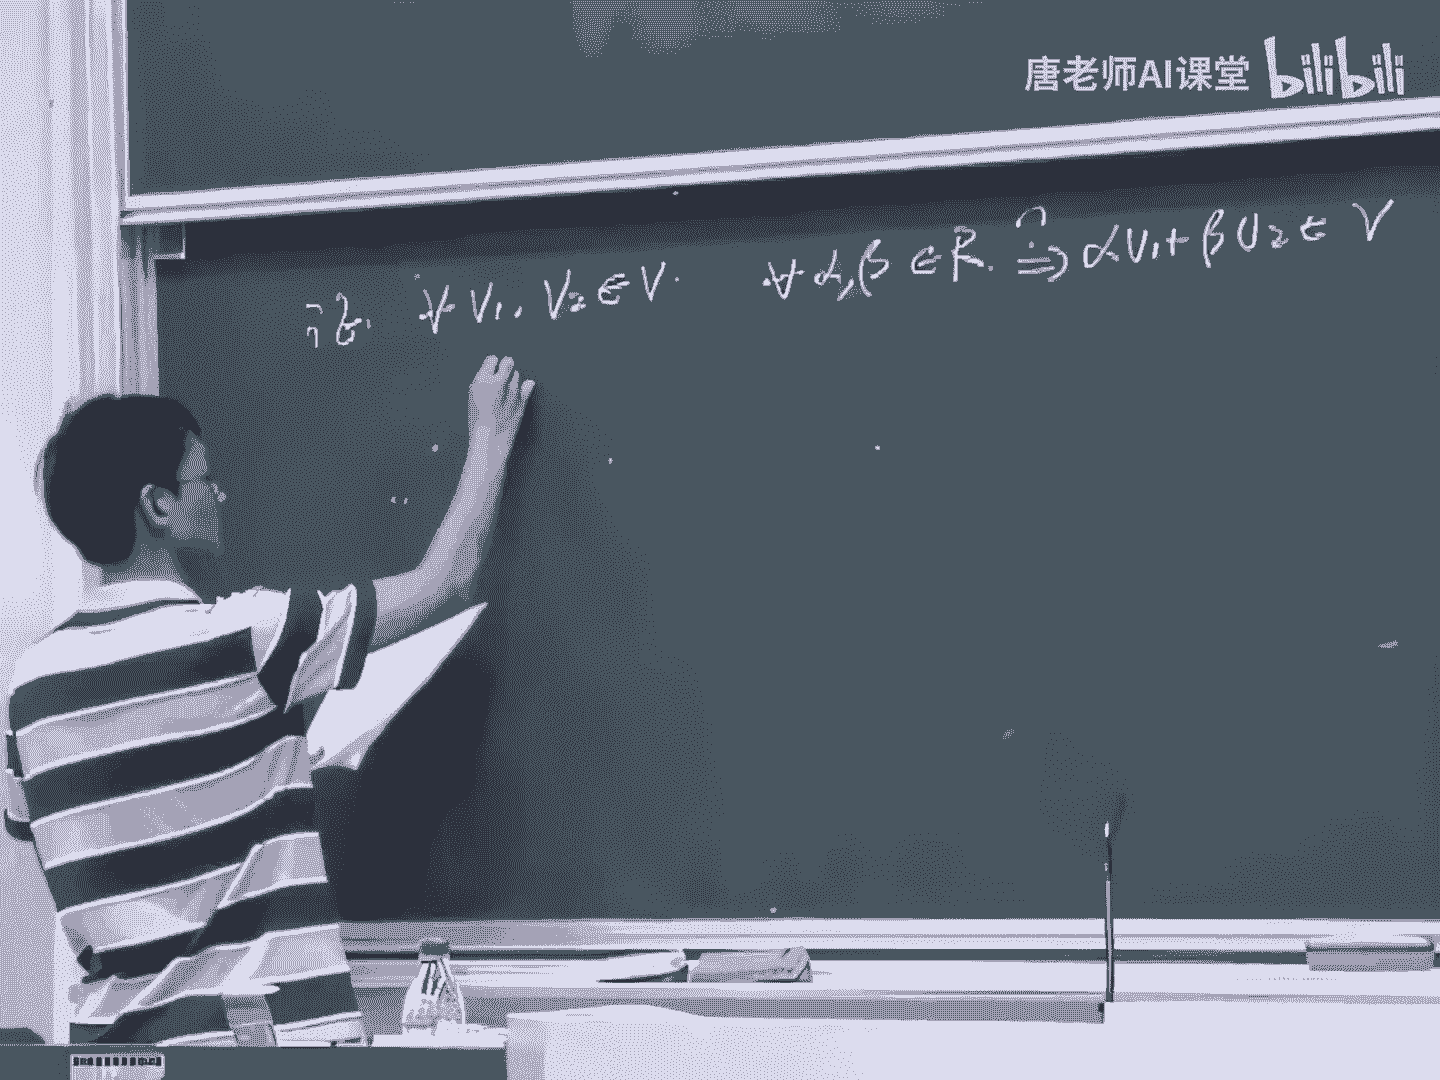 唐老师AI课堂 bilibili
证. ∀ V₁, V₂ ∈ V. ∀ α, β ∈ R. ⇒ αV₁ + βV₂ ∈ V